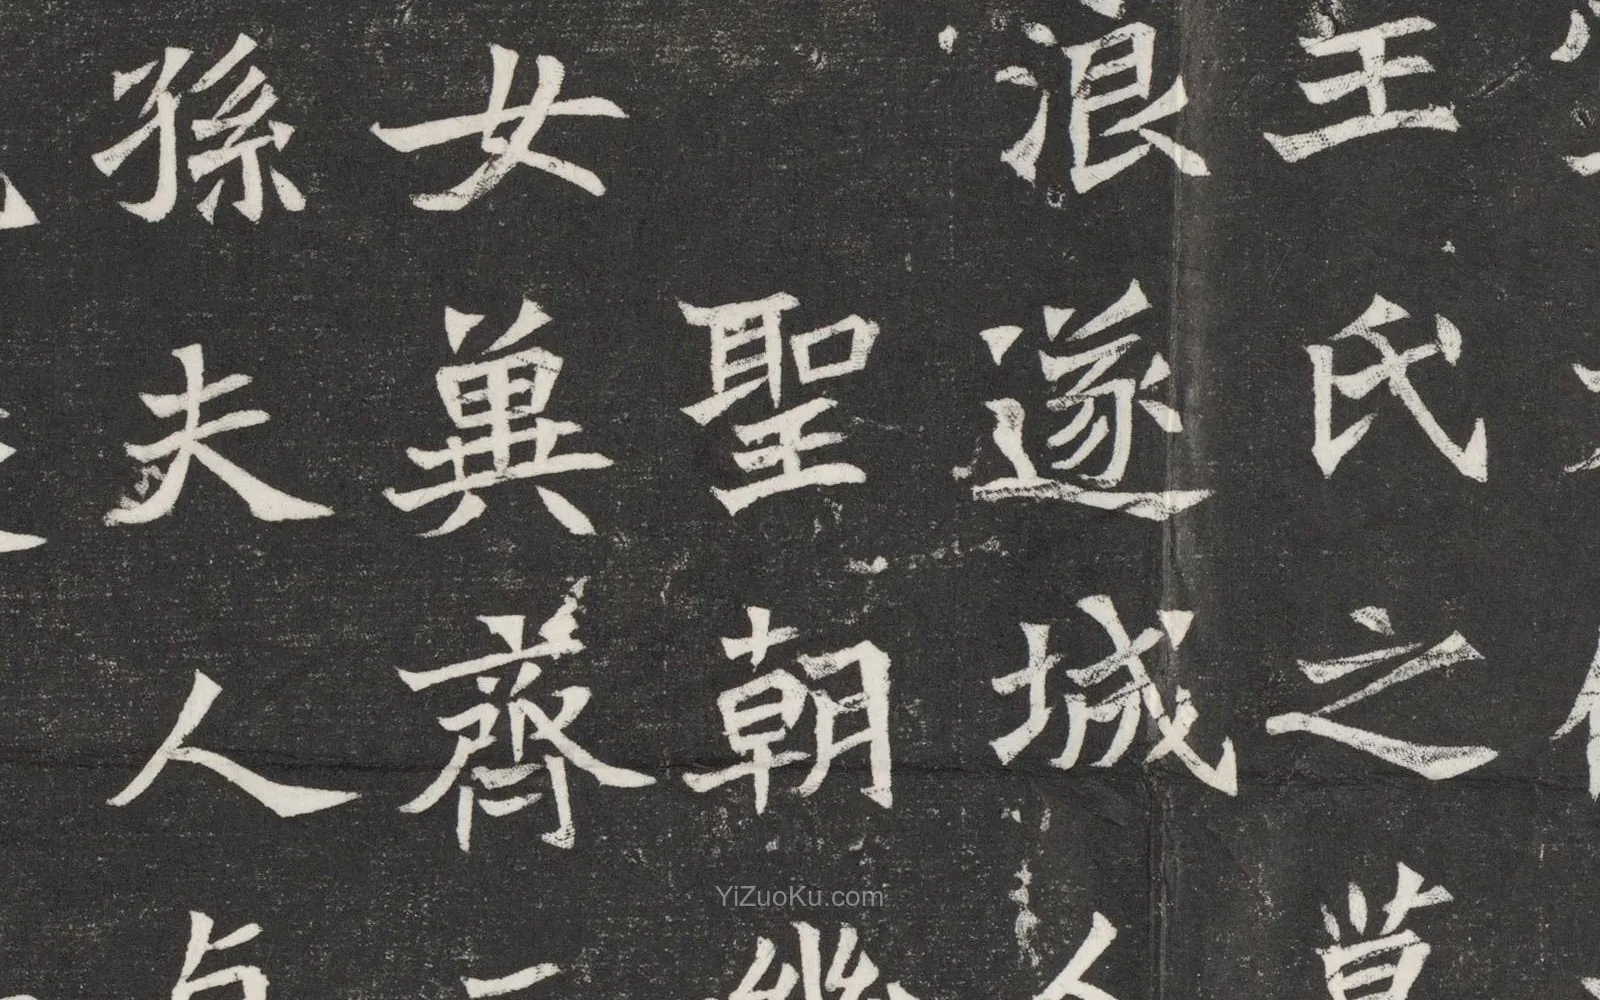 王氏之
浪遂城人
聖朝
女冀齊一
孫夫人
YiZuoKu.com